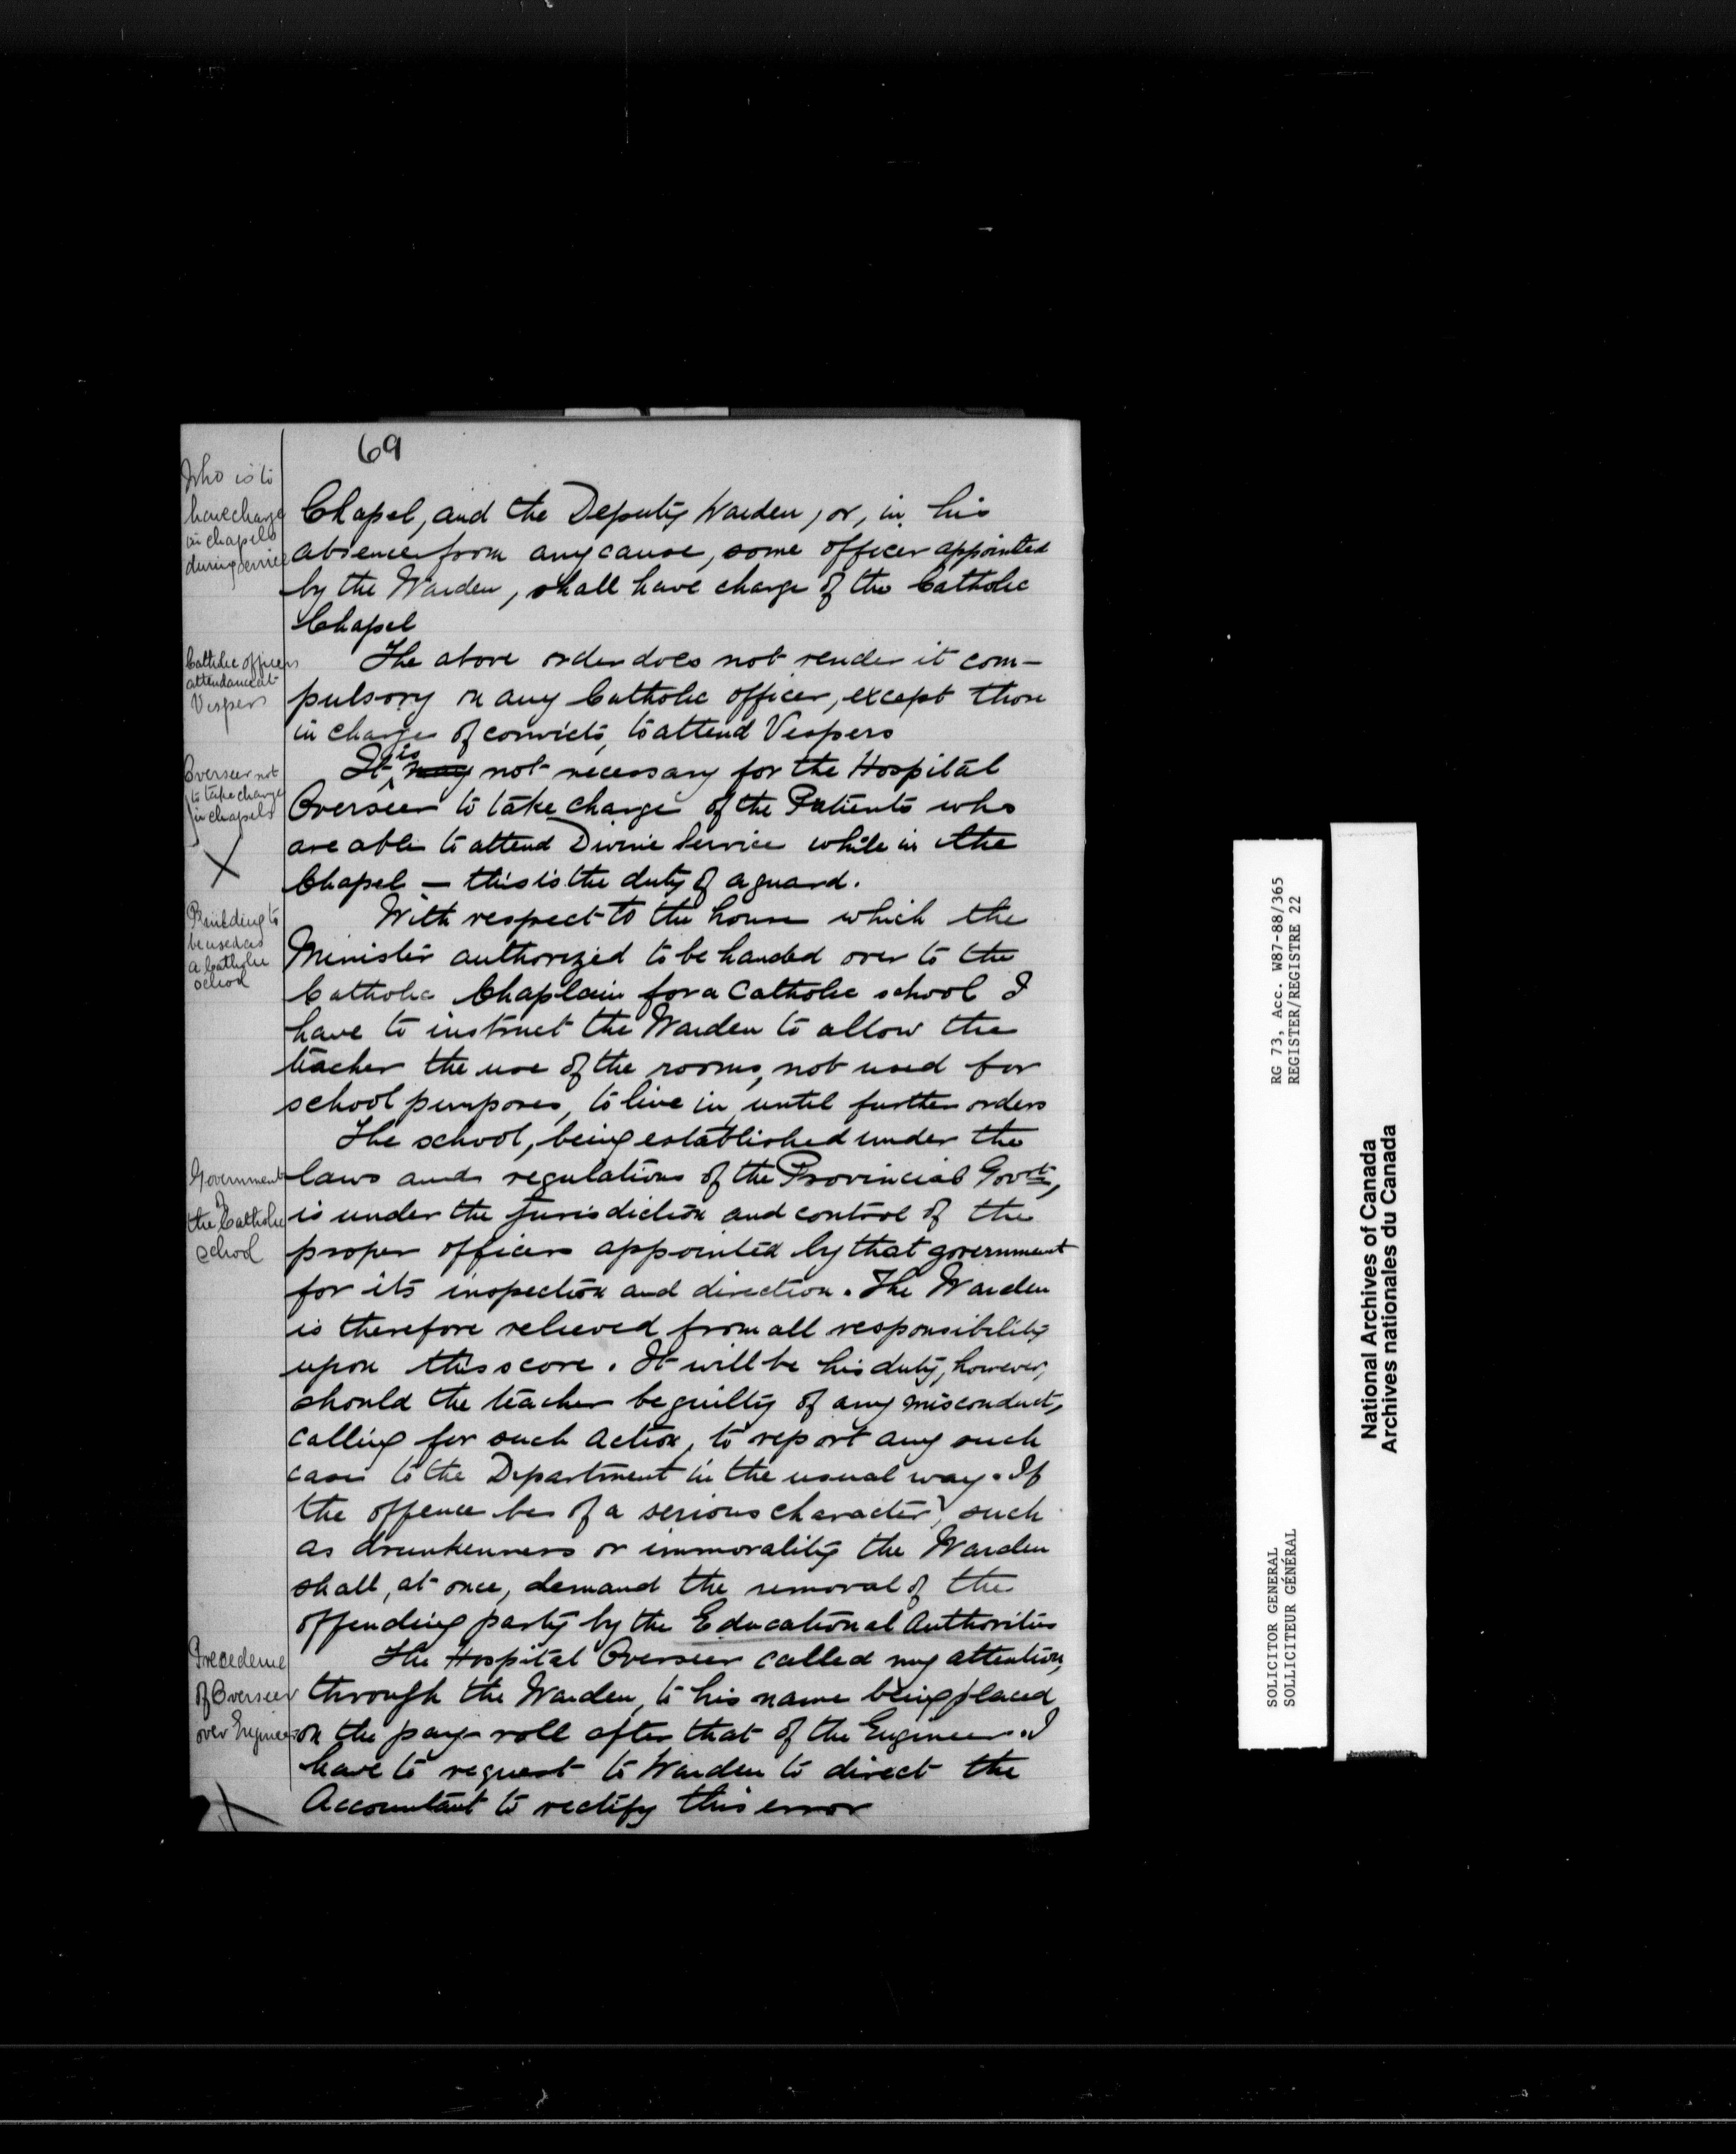 69
Who is to
have charge
in chapels
during service
Chapel, and the Deputy Warden, or, in his
absence from any cause, some officer appointed
by the Warden, shall have charge of the Catholic
Chapel
Catholic officers
attendance at
Vespers
The above order does not render it com-
pulsory on any Catholic officer, except those
in charge of convicts, to attend Vespers
Overseer not
to take charge
in chapels
X
It is may not necessary for the Hospital
Overseer to take charge of the Patients who
are able to attend Divine Service while in the
Chapel — this is the duty of a guard.
Building to
be used as
a Catholic
school
With respect to the house which the
Minister authorized to be handed over to the
Catholic Chaplain for a Catholic school I
have to instruct the Warden to allow the
teacher the use of the rooms, not used for
school purposes, to live in, until further orders
The school, being established under the
Government
of
the Catholic
school
laws and regulations of the Provincial Govt,
is under the jurisdiction and control of the
proper officers appointed by that government
for its inspection and direction. The Warden
is therefore relieved from all responsibility
upon this score. It will be his duty, however,
should the teacher be guilty of any misconduct,
calling for such action, to report any such
case to the Department in the usual way. If
the offence be of a serious character, such
as drunkenness or immorality the Warden
shall, at once, demand the removal of the
offending party by the Educational Authorities
Precedence
of Overseer
over Engineer
X
The Hospital Overseer called my attention,
through the Warden, to his name being placed
on the pay-roll after that of the Engineer. I
have to request to Warden to direct the
Accountant to rectify this error
RG 73, Acc. W87-88/365
REGISTER/REGISTRE 22
SOLICITOR GENERAL
SOLLICITEUR GÉNÉRAL
National Archives of Canada
Archives nationales du Canada